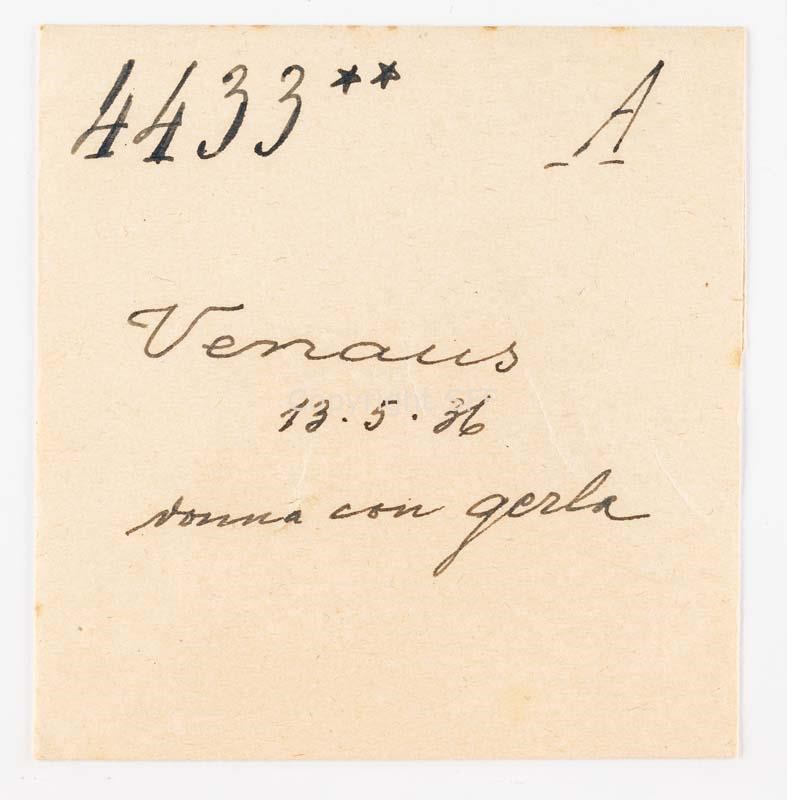 4433** A
Venaus
13.5.36
donna con gerla